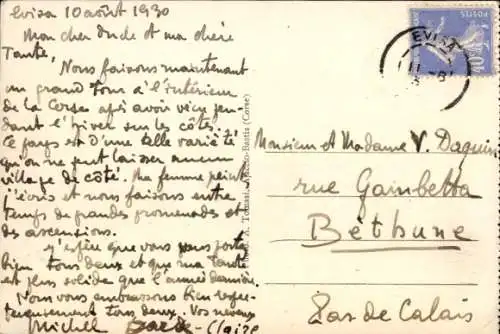 Evisa 10 août 1930
Mon cher oncle et ma chère
Tante,
Nous faisons maintenant
un grand tour à l'intérieur
de la Corse après avoir vécu pen-
dant l'hiver sur les côtes.
Ce pays est d'une telle variété
qu'on ne peut laisser aucun
village de côté. Ma femme peint
j'écris et nous faisons entre
temps de grandes promenades et
des ascensions.
J'espère que vous vous portez
bien tous deux et que ma tante
est plus solide que l'année dernière.
Nous vous embrassons bien
tous deux. Vos neveux
Michel - Claire
Tomasi, Ajaccio-Bastia (Corse)
POSTES
40
EVISA
Monsieur et Madame V. Daquin
rue Gambetta
Béthune
Pas de Calais